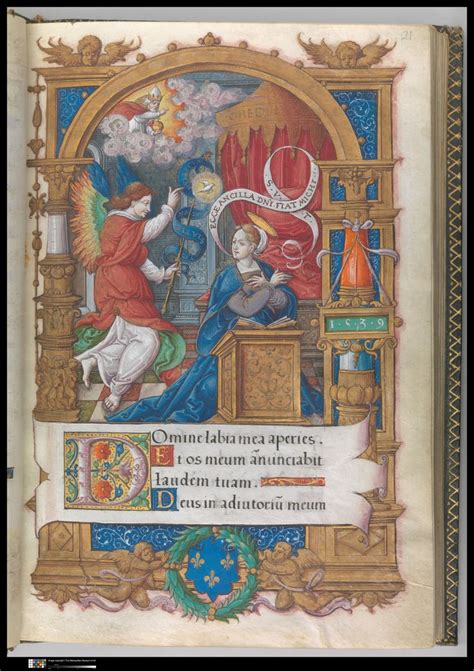 21
ECCE ANCILLA DNI. FIAT MICHI
1539
Domine labia mea aperies.
Et os meum ān̄unciabit
laudem tuam.
Deus in adiutoriū meum